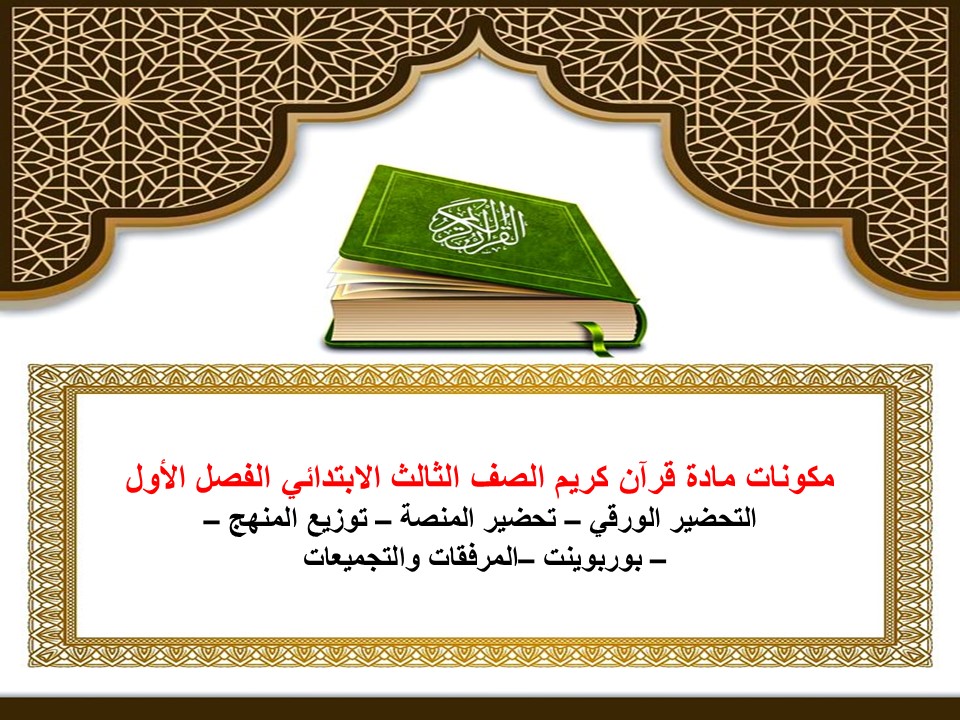 القرآن الكريم
مكونات مادة قرآن كريم الصف الثالث الابتدائي الفصل الأول
التحضير الورقي – تحضير المنصة – توزيع المنهج –
– بوربوينت –المرفقات والتجميعات